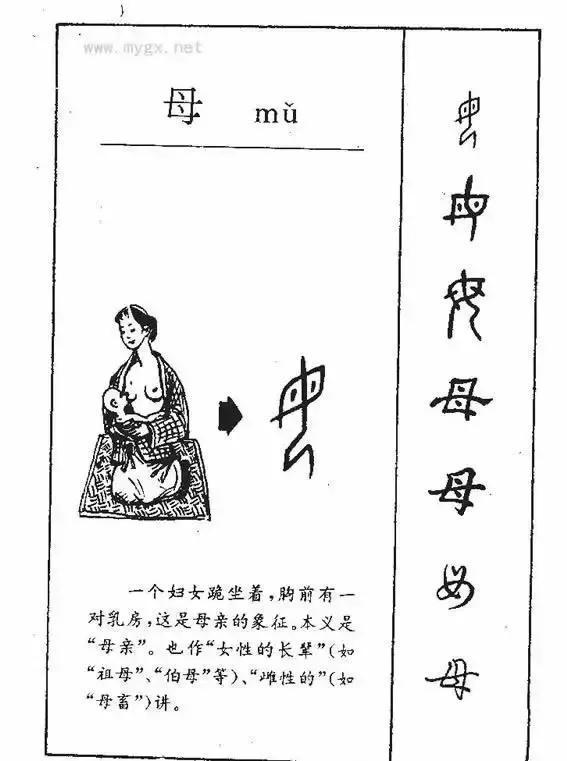 www.mygx.net
母 mǔ
一个妇女跪坐着,胸前有一
对乳房,这是母亲的象征。本义是
“母亲”。也作“女性的长辈”(如
“祖母”、“伯母”等)、“雌性的”(如
“母畜”)讲。
母
母
母
母
母
母
母